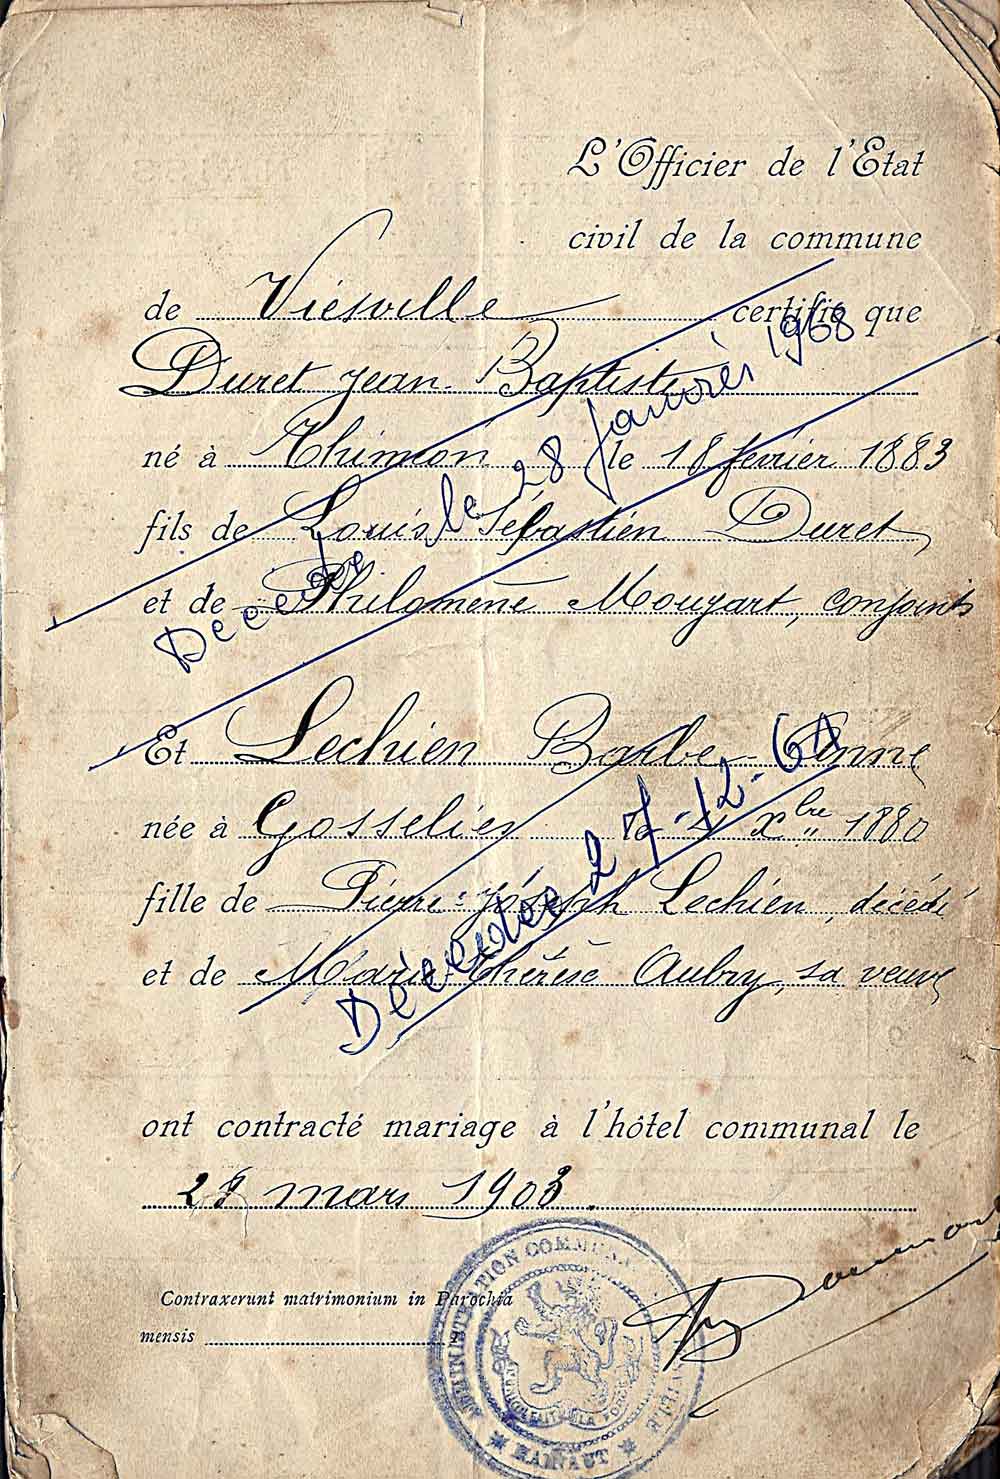 L'Officier de l'Etat
civil de la commune
de Viesville certifie que
Duret Jean-Baptiste
né à Thiméon le 18 février 1883
fils de Louis Sébastien Duret
et de Philomène Mougart, conjoints
Décédé le 28 Janvier 1968
Et Lechien Barbe-Anne
née à Gosselies Xbre 1880
fille de Pierre-Joseph Lechien, décédé
et de Marie-Thérèse Aubry, sa veuve
Décédée 27-12-61
ont contracté mariage à l'hôtel communal le
28 mars 1903.
Contraxerunt matrimonium in Parochia
mensis
ADMINISTRATION COMMUNALE
L'UNION FAIT LA FORCE
HAINAUT